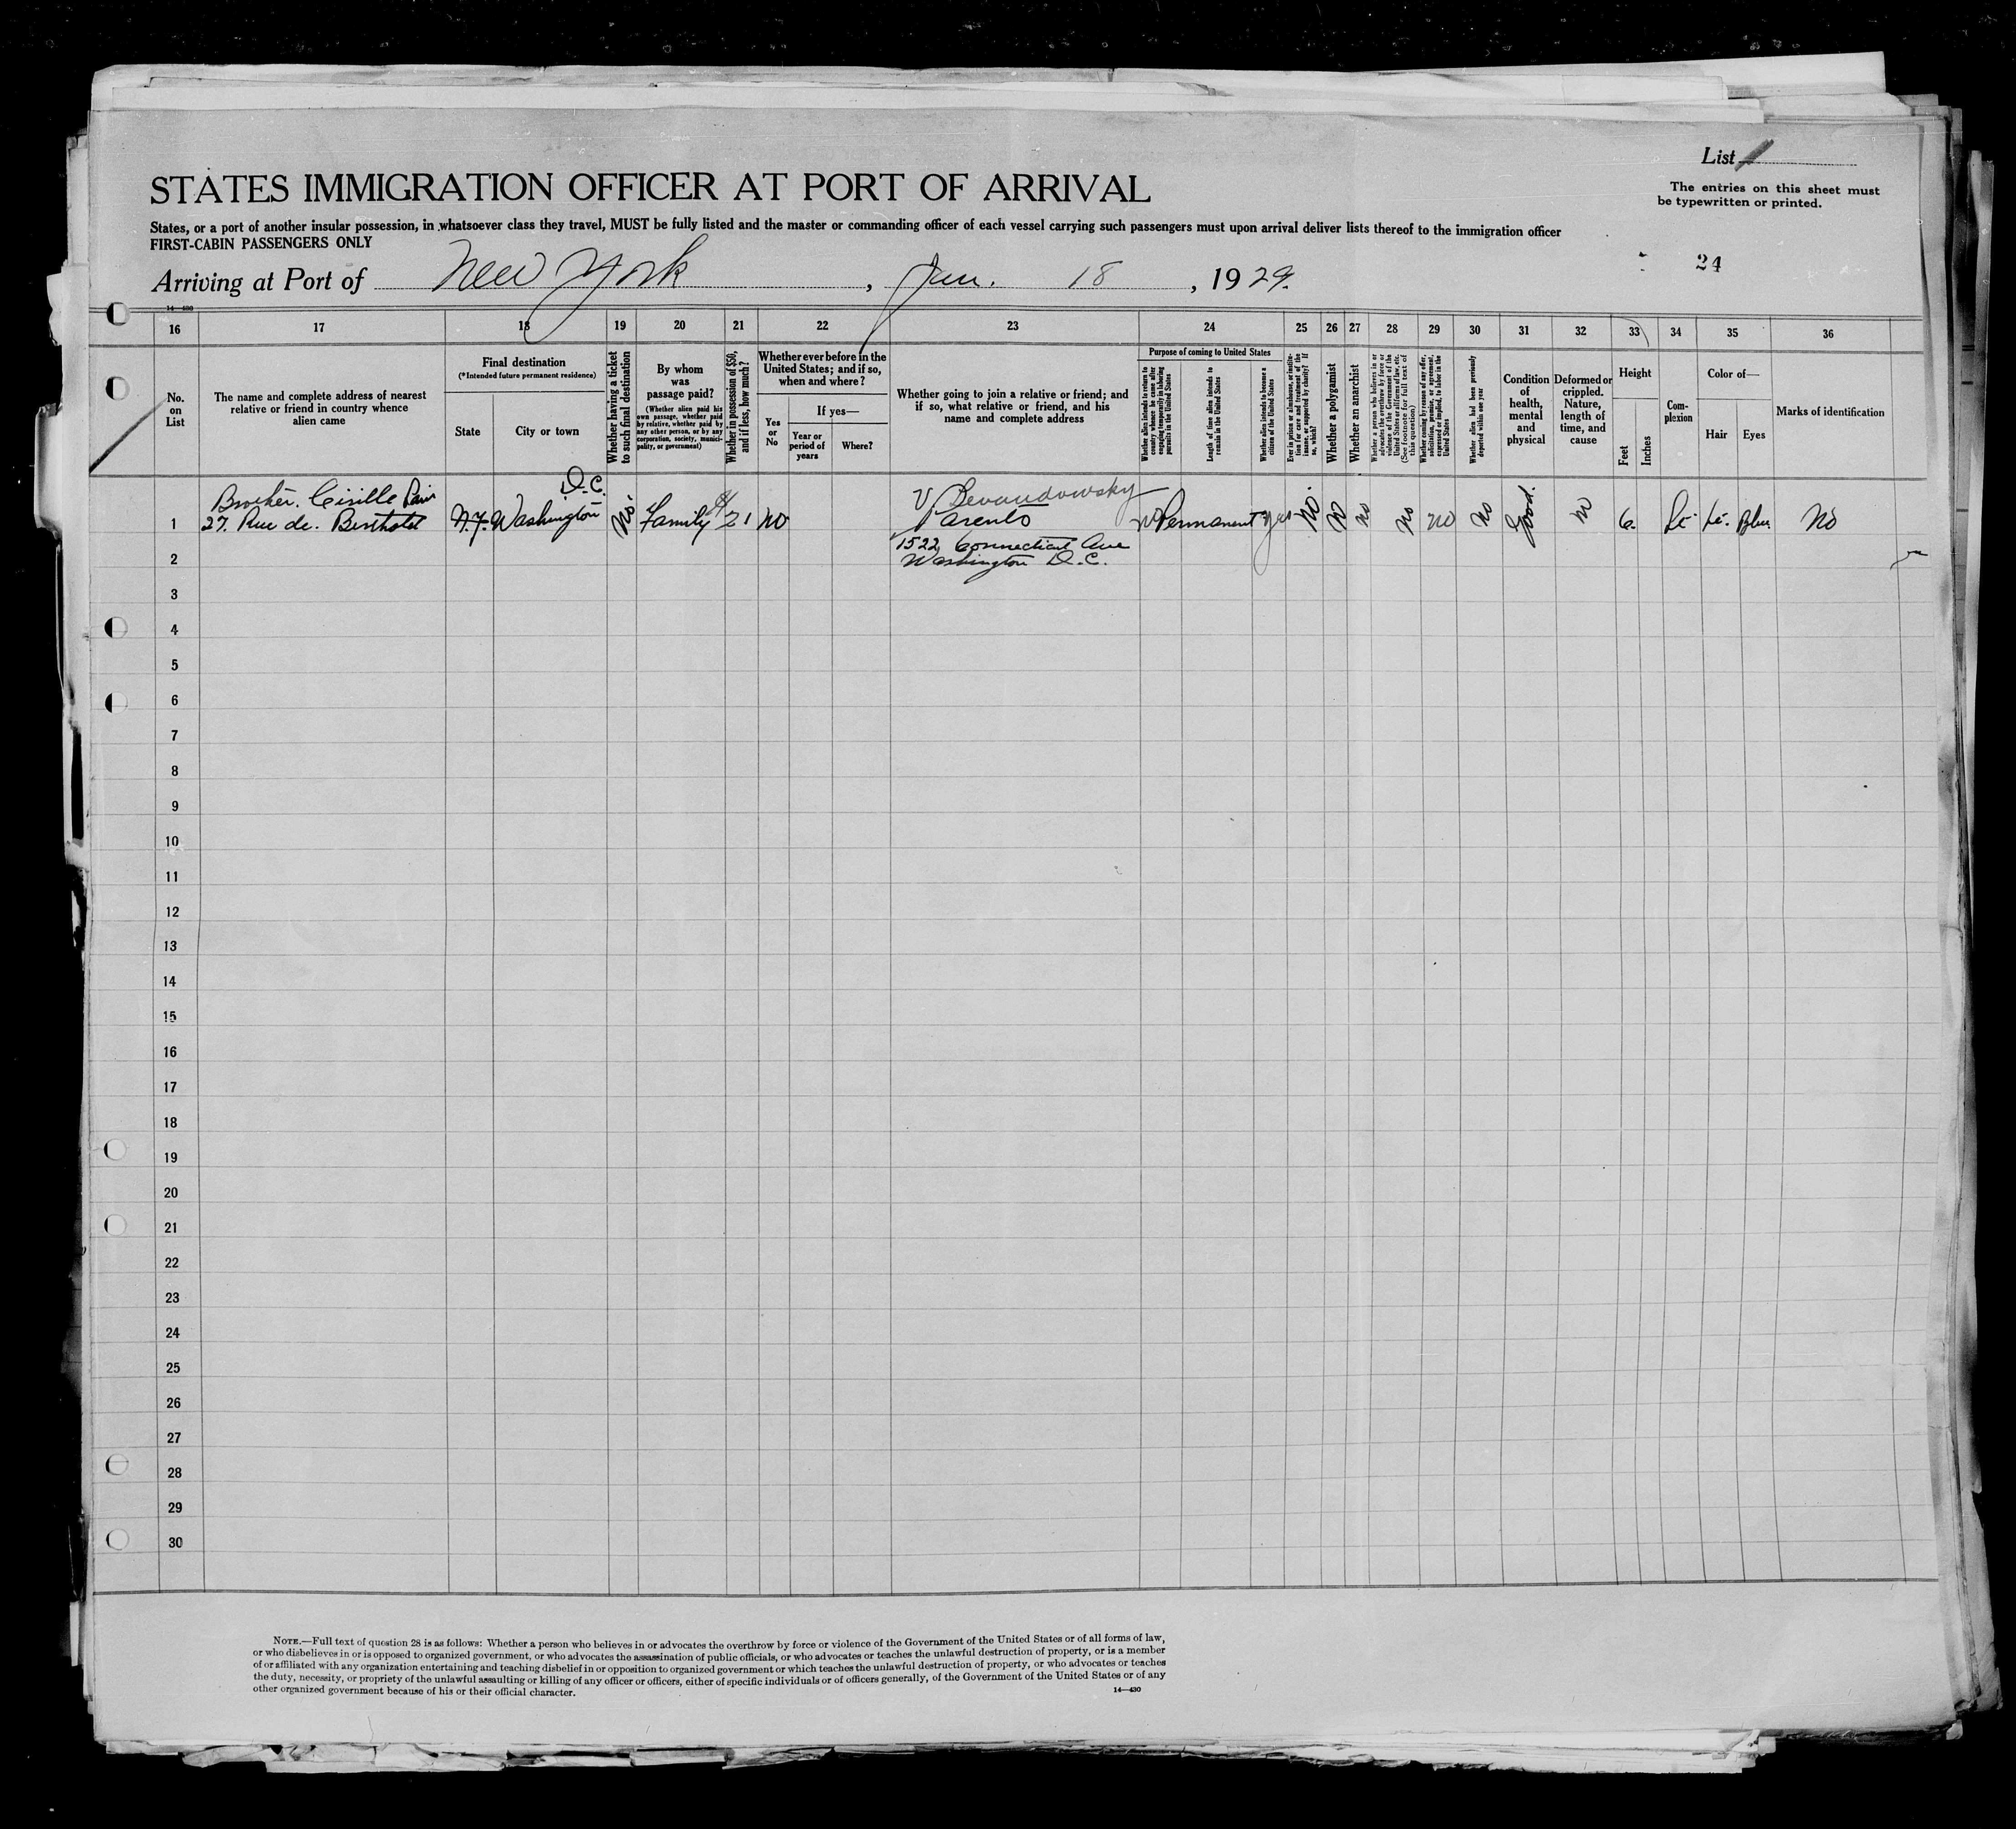 List 1
The entries on this sheet must
be typewritten or printed.
STATES IMMIGRATION OFFICER AT PORT OF ARRIVAL
States, or a port of another insular possession, in whatsoever class they travel, MUST be fully listed and the master or commanding officer of each vessel carrying such passengers must upon arrival deliver lists thereof to the immigration officer
FIRST-CABIN PASSENGERS ONLY
24
Arriving at Port of New York, Jan. 18, 1929.
14—430
16 17 18 19 20 21 22 23 24 25 26 27 28 29 30 31 32 33 34 35 36
No.
on
List
The name and complete address of nearest
relative or friend in country whence
alien came
Final destination
(*Intended future permanent residence)
State
City or town
Whether having a ticket
to such final destination
By whom
was
passage paid?
(Whether alien paid his
own passage, whether paid
by relative, whether paid by
any other person, or by any
corporation, society, munici-
pality, or government)
Whether in possession of $50,
and if less, how much?
Whether ever before in the
United States; and if so,
when and where?
Yes
or
No
If yes—
Year or
period of
years
Where?
Whether going to join a relative or friend; and
if so, what relative or friend, and his
name and complete address
Purpose of coming to United States
Whether alien intends to return to
country whence he came after
engaging temporarily in laboring
pursuits in the United States
Length of time alien intends to
remain in the United States
Whether alien intends to become a
citizen of the United States
Ever in prison or almshouse, or institu-
tion for care and treatment of the
insane, or supported by charity? If
so, which?
Whether a polygamist
Whether an anarchist
Whether a person who believes in or
advocates the overthrow by force or
violence of the Government of the
United States or all forms of law, etc.
(See footnote for full text of
this question)
Whether coming by reason of any offer,
solicitation, promise, or agreement,
expressed or implied, to labor in the
United States
Whether alien had been previously
deported within one year
Condition
of
health,
mental
and
physical
Deformed or
crippled.
Nature,
length of
time, and
cause
Height
Feet
Inches
Com-
plexion
Color of—
Hair
Eyes
Marks of identification
D.C.
Brother. Cirille Paris
V
1 27. Rue de. Bertholet N.Y. Washington No Family 21 No Parents no Permanent yes No No no No no No Good. no 6. Lt. Lt. Blu. No
1522 Connecticut Ave
2 Washington D.C.
3
4
5
6
7
8
9
10
11
12
13
14
15
16
17
18
19
20
21
22
23
24
25
26
27
28
29
30
NOTE.—Full text of question 28 is as follows: Whether a person who believes in or advocates the overthrow by force or violence of the Government of the United States or of all forms of law,
or who disbelieves in or is opposed to organized government, or who advocates the assassination of public officials, or who advocates or teaches the unlawful destruction of property, or is a member
of or affiliated with any organization entertaining and teaching disbelief in or opposition to organized government or which teaches the unlawful destruction of property, or who advocates or teaches
the duty, necessity, or propriety of the unlawful assaulting or killing of any officer or officers, either of specific individuals or of officers generally, of the Government of the United States or of any
other organized government because of his or their official character.
14—430